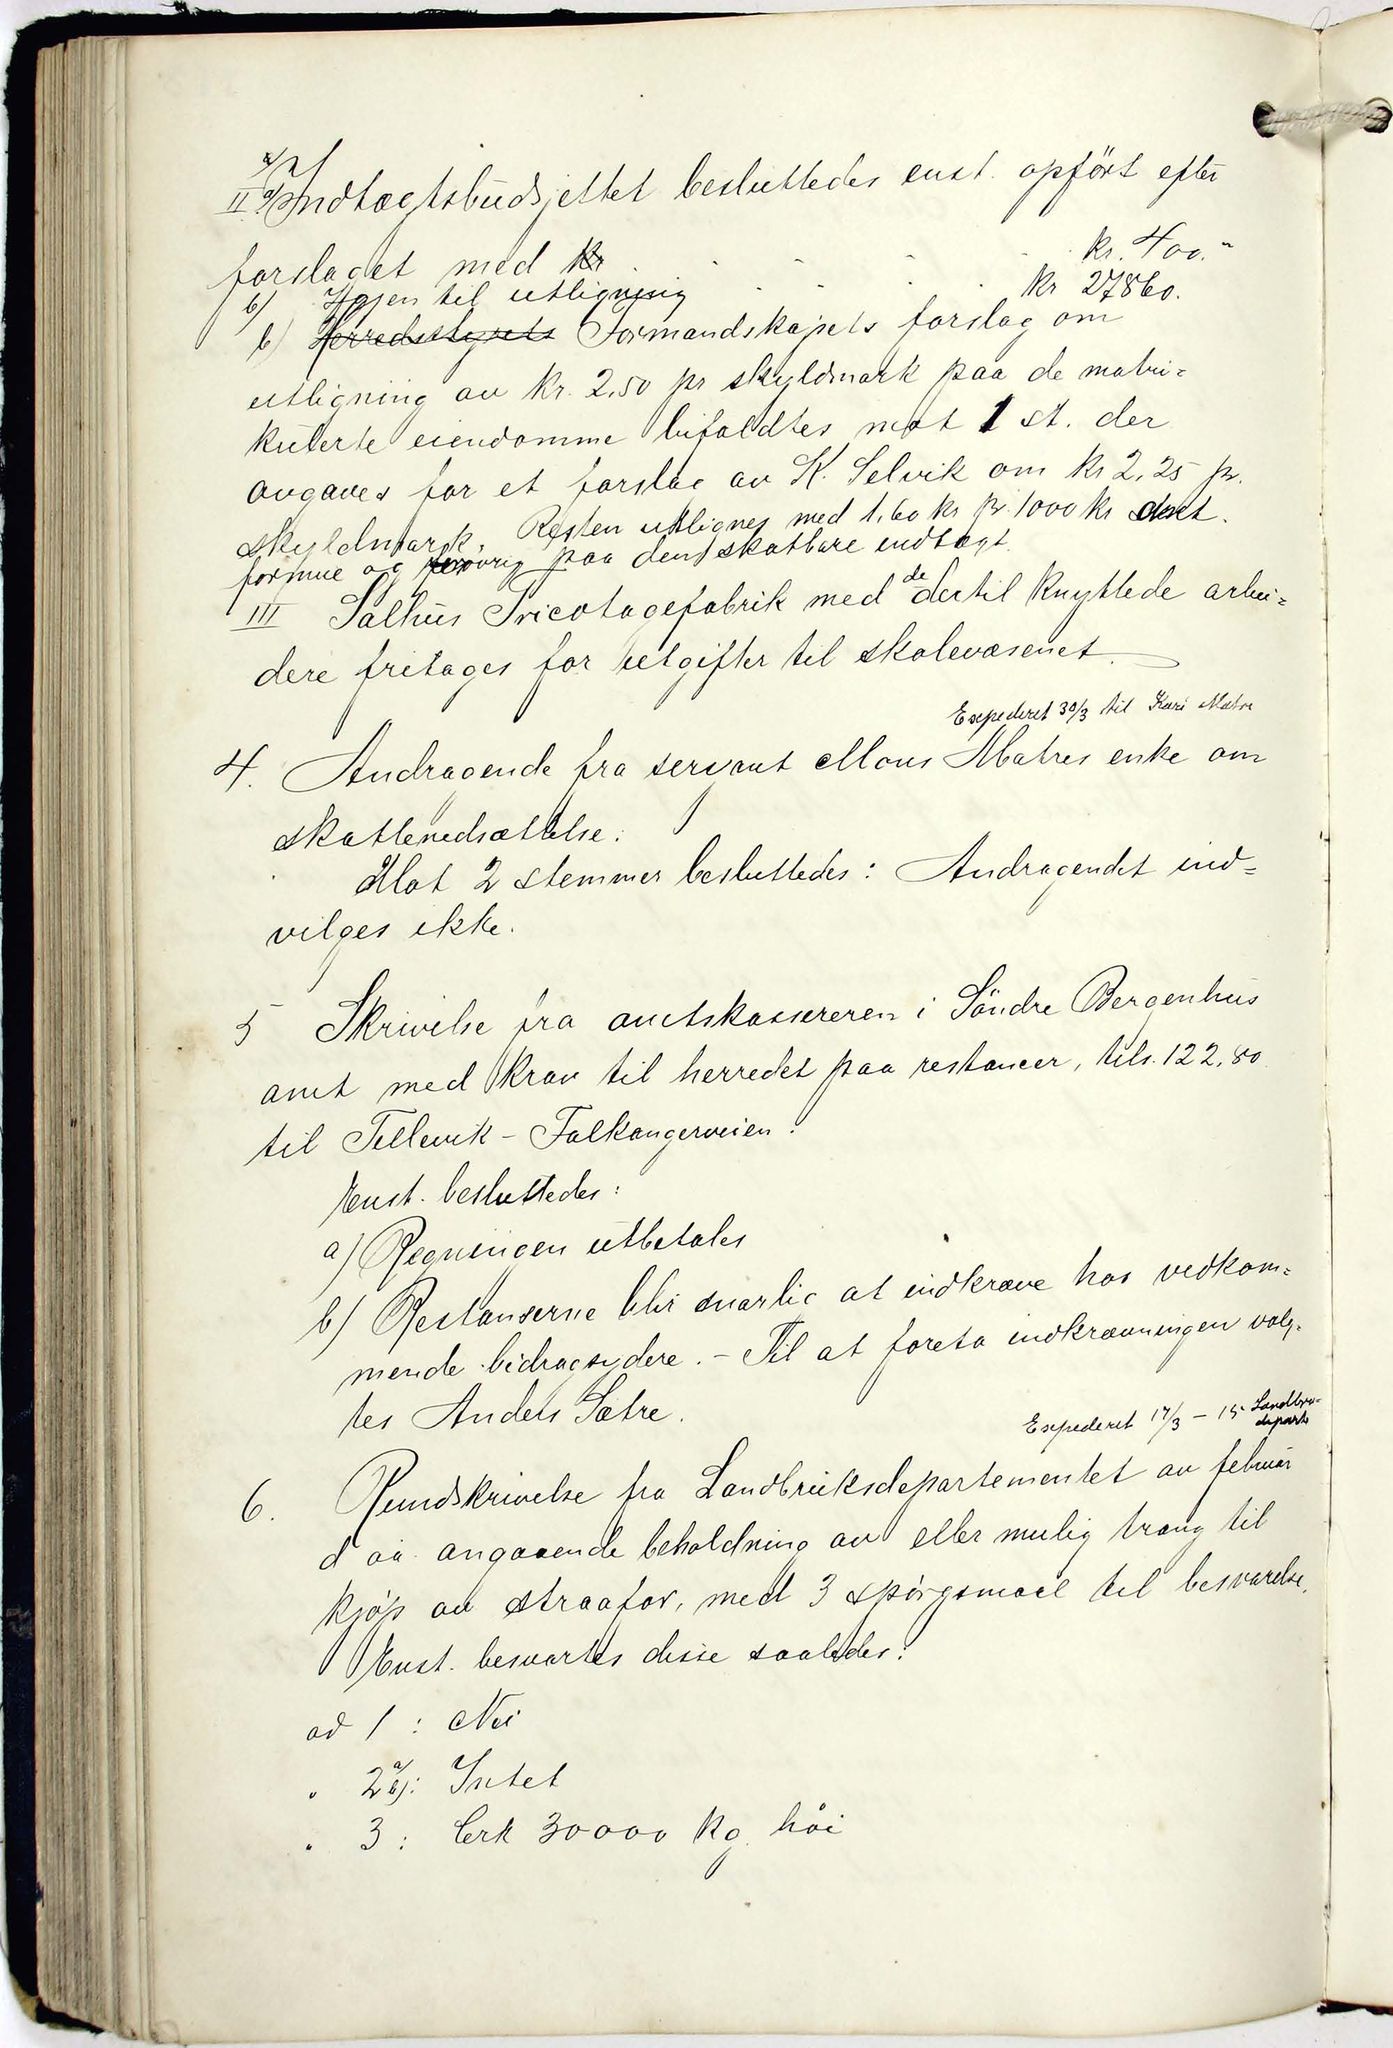 II a) Indtægtsbudsjettet besluttedes enst. opført efter
forslaget med kr . . . . . kr. 400.-
b) Igjen til utligning . . . . . kr 27860.
b) Herredsstyrets Formandskapets forslag om
utligning av kr. 2,50 pr skyldmark paa de matri=
kulerte eiendomme bifaldtes mot 1 st. der
avgaves for et forslag av K. Selvik om kr 2,25 pr.
skyldmark. Resten utlignes med 1,60 kr pr. 1000 kr
formue og forøvrig paa den skatbare indtægt.
III Salhus Tricotagefabrik med de dertil knyttede arbei=
dere fritages for utgifter til skolevæsenet.
Expederet 30/3 til Kari Matre
4. Andragende fra sersjant Mons Matres enke om
skattenedsættelse.
Mot 2 stemmer besluttedes: Andragendet ind=
vilges ikke.
5 Skrivelse fra amtskassereren i Söndre Bergenhus
amt med krav til herredet paa restancer, tils. 122,80
til Tellevik - Falkangerveien.
Enst. besluttedes:
a) Regningen utbetales
b) Restanserne blir snarlig at indkræve hos vedkom=
mende bidragsydere. - Til at foreta indkrævningen valg-
tes Anders Sætre.
Expederet 17/3 - 15 Landbru-
depart
6. Rundskrivelse fra Landbruksdepartementet av februar
d aa. angaaende beholdning av eller mulig trang til
kjøp av straafor, med 3 spörgsmaal til besvarelse.
Enst. besvartes disse saaledes:
ad 1 : Nei
" 2 a) b): Intet
" 3 : Crk 30000 kg. höi